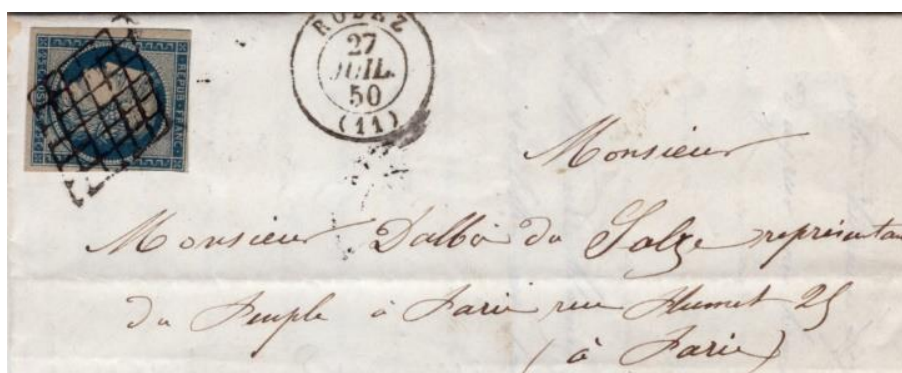 REPUB. FRANC.
RODEZ
27
JUIL.
50
(11)
Monsieur
Monsieur Dalbo du Salze représentan
du Peuple à Paris rue Plumet 25
(à Paris)